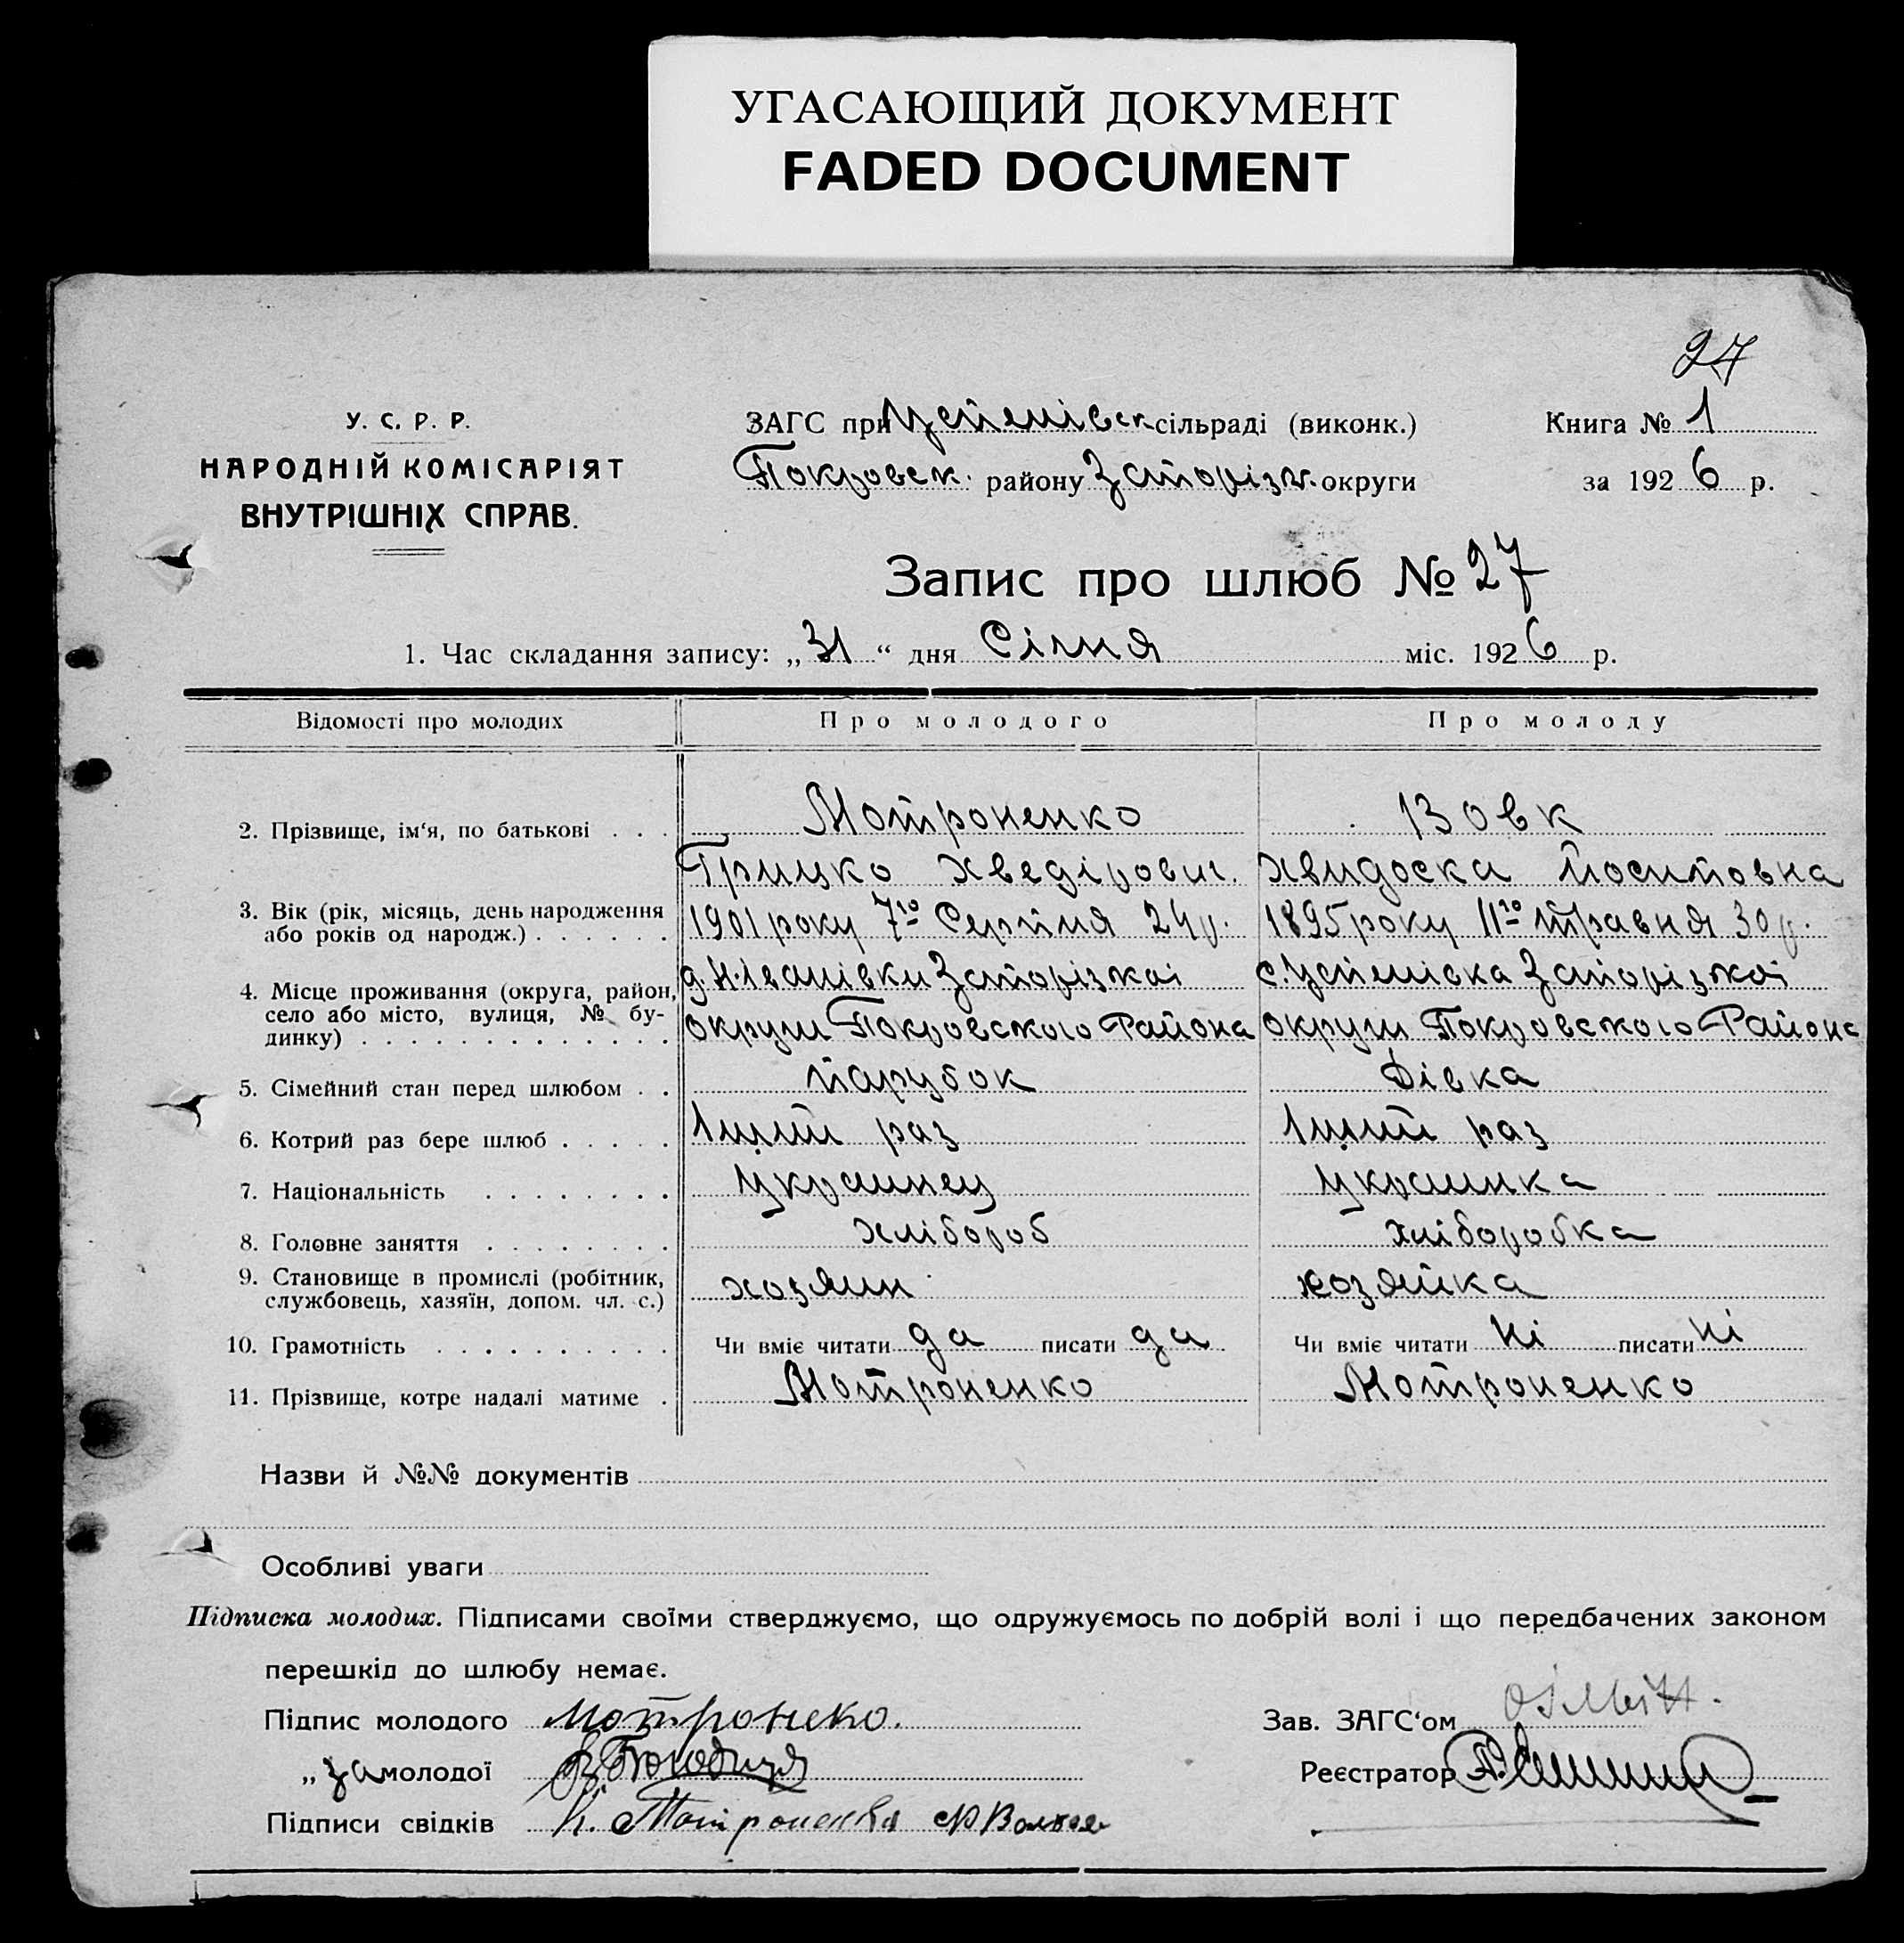 УГАСАЮЩИЙ ДОКУМЕНТ
FADED DOCUMENT
27
У. С. Р. Р.
НАРОДНІЙ КОМІСАРІЯТ
ВНУТРІШНІХ СПРАВ.
ЗАГС при Успенівск сільраді (виконк.)
Покровськ. району Запоріз. округи
Книга № 1
за 1926 р.
Запис про шлюб № 27
1. Час складання запису: „31“ дня Січня міс. 1926 р.
Відомості про молодих Про молодого Про молоду
2. Прізвище, ім‘я, по батькові . . . Мотроненко Вовк
Грицко Хведірович. Хвидоска Йосиповна
3. Вік (рік, місяць, день народження або років од народж.) . . . . . . 1901 року 7го Серпня 24 р. 1895 року 11го травня 30 р.
4. Місце проживання (округа, район, село або місто, вулиця, № будинку) . . . . . . . . . . . . . д. Н-Іванівки Запорізкоі с. Успенівка Запорізкоі
округи Покровского Района округи Покровского Района
5. Сімейний стан перед шлюбом . . парубок Дівка
6. Котрий раз бере шлюб . . . . . 1ший раз 1ший раз
7. Національність . . . . . . . . Украинец Украинка
8. Головне заняття . . . . . . . . хлібороб хліборобка
9. Становище в промислі (робітник, службовець, хазяїн, допом. чл. с.) хозяин хозяйка
10. Грамотність . . . . . . . . . . Чи вміє читати да писати да Чи вміє читати ні писати ні
11. Прізвище, котре надалі матиме . Мотроненко Мотроненко
Назви й №№ документів
Особливі уваги
Підписка молодих. Підписами своїми стверджуємо, що одружуємось по добрій волі і що передбачених законом
перешкід до шлюбу немає.
Підпис молодого Мотронеко.
Зав. ЗАГС‘ом
„ за молодої
Реєстратор
Підписи свідків